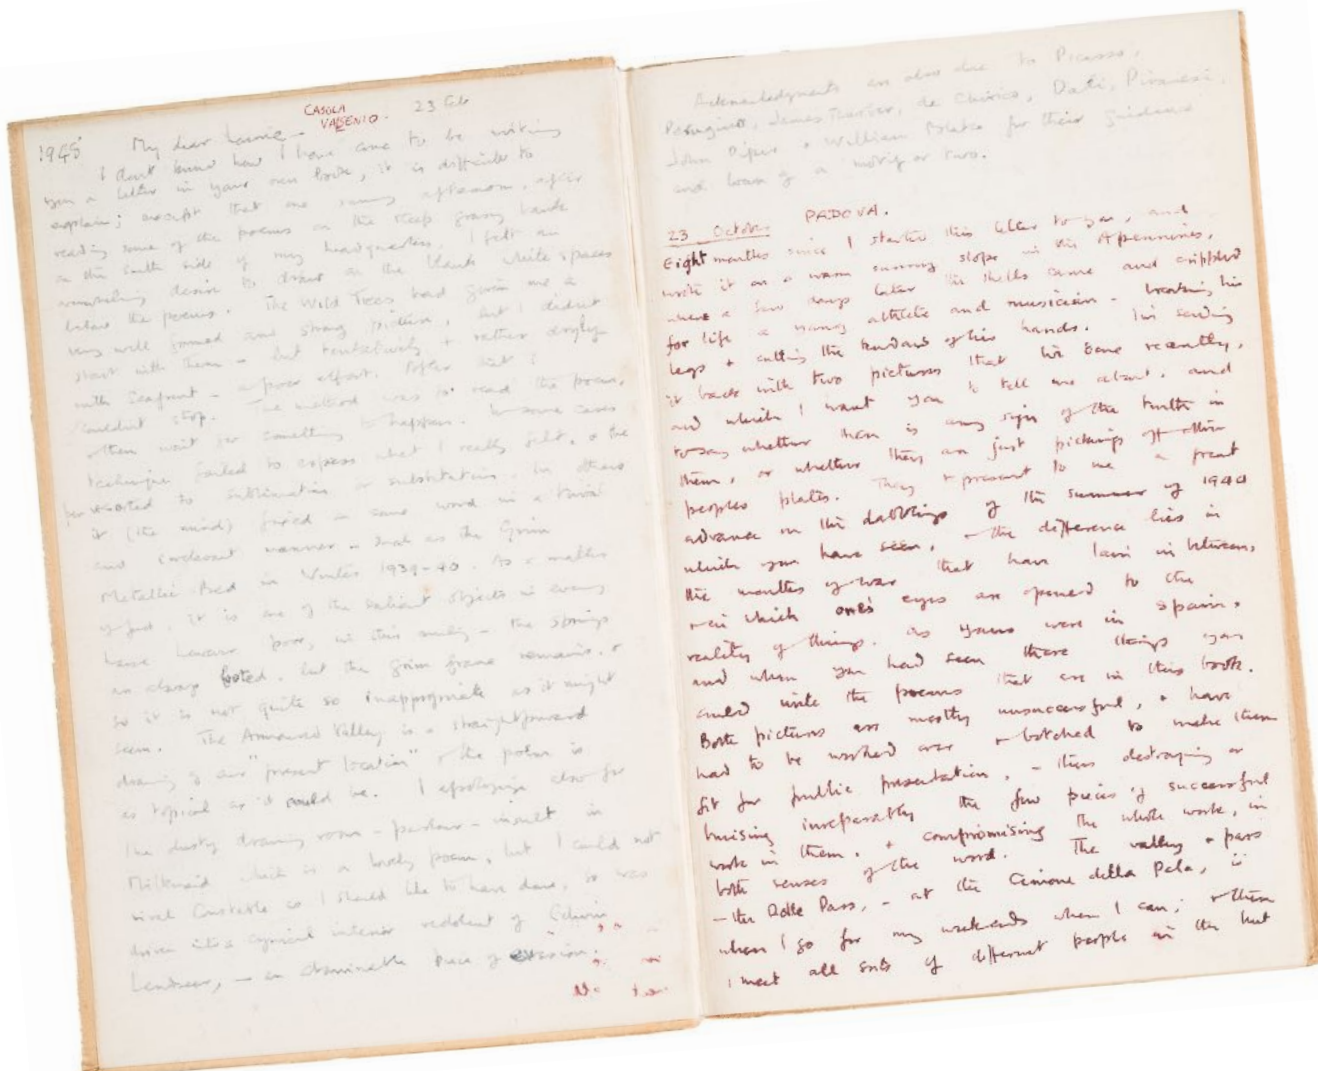 CASOLA
VALSENIO. 23 Feb
1945 My dear Laurie -
I don't know how I have come to be writing
you a letter in your own book, it is difficult to
explain; except that one sunny afternoon, after
reading some of the poems on the steep grassy bank
on the south side of my headquarters, I felt an
overwhelming desire to draw on the blank white spaces
below the poems. The Wild Trees had given me a
very well formed and strong picture, but I didn't
start with them - but tentatively + rather
with Seafront - a poor effort. After that I
couldn't stop. The method was to read the poem,
then wait for something to happen. In some cases
technique failed to express what I really felt, + the
resorted to sublimation or substitution. In others
it (the mind) fixed on some word in a trivial
and irrelevant manner - such as the Grim
Metallic Bed in Winter 1939-40. As a matter
of fact, it is one of the salient objects in every
house however poor, in this valley - the springs
are always looted, but the grim frame remains, +
so it is not quite so inappropriate as it might
seem. The Armoured Valley is a straightforward
drawing of our "present location" + the poem is
as topical as it could be. I apologize also for
the dusty drawing room - parlour - insult in
Milkmaid which is a lovely poem, but I could not
rival Constable as I should like to have done, so was
driven into a cynical interior redolent of Edwin
Landseer, - an abominable piece of evasion.
Acknowledgments are also due to Picasso,
Perugino, James Thurber, de Chirico, Dali, Piranesi,
John Piper + William Blake for their guidance
and loan of a motif or two.
23 October PADOVA.
Eight months since I started this letter to you, and
wrote it on a warm sunny slope in the Apennines,
where a few days later the shells came and crippled
for life a young athlete and musician - breaking his
legs + cutting the tendons of his hands. I'm sending
it back with two pictures that I've done recently,
and which I want you to tell me about, and
to say whether there is any sign of the truth in
them, or whether they are just pickings off other
peoples plates. They represent to me a great
advance on the dabblings of the summer of 1940
which you have seen, - the difference lies in
the months of war that have lain in between,
+ in which one's eyes are opened to the
reality of things, as yours were in Spain,
and when you had seen these things you
could write the poems that are in this book.
Both pictures are mostly unsuccessful, + have
had to be worked over + botched to make them
fit for public presentation, - thus destroying or
bruising irreparably the few pieces of successful
work in them, + compromising the whole work, in
both senses of the word. The valley + pass
- the Rolle Pass, - at the Cimone della Pala, is
where I go for my weekends when I can; + there
I meet all sorts of different people in the hut